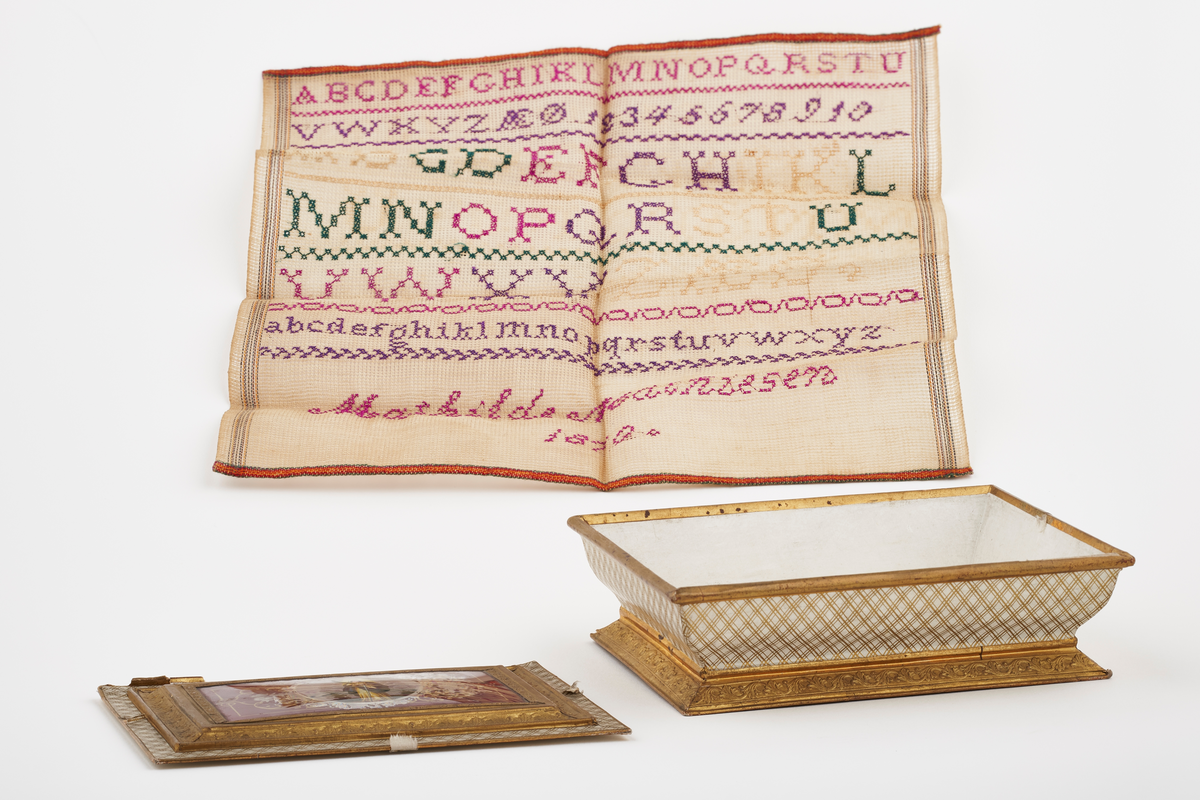 ABCDEFGHIKLMNOPQRSTU
VWXYZÆØ 12345678910
CDEFGHIKL
MNOPQRSTU
VWXY
abcdefghiklmnopqrstuvwxyz
Mathilde